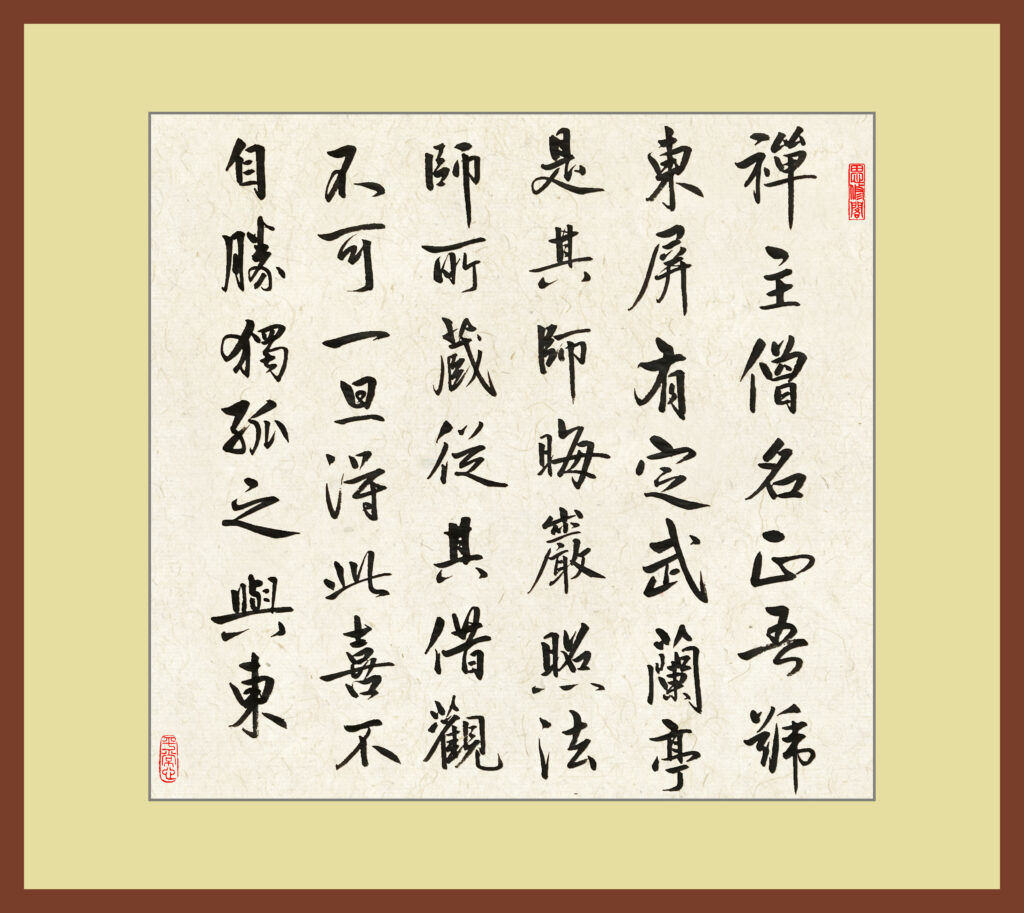 禪主僧名正吾號
東屏有定武蘭亭
是其師晦巖照法
師所藏從其借觀
不可一旦得此喜不
自勝獨孤之與東
平常心